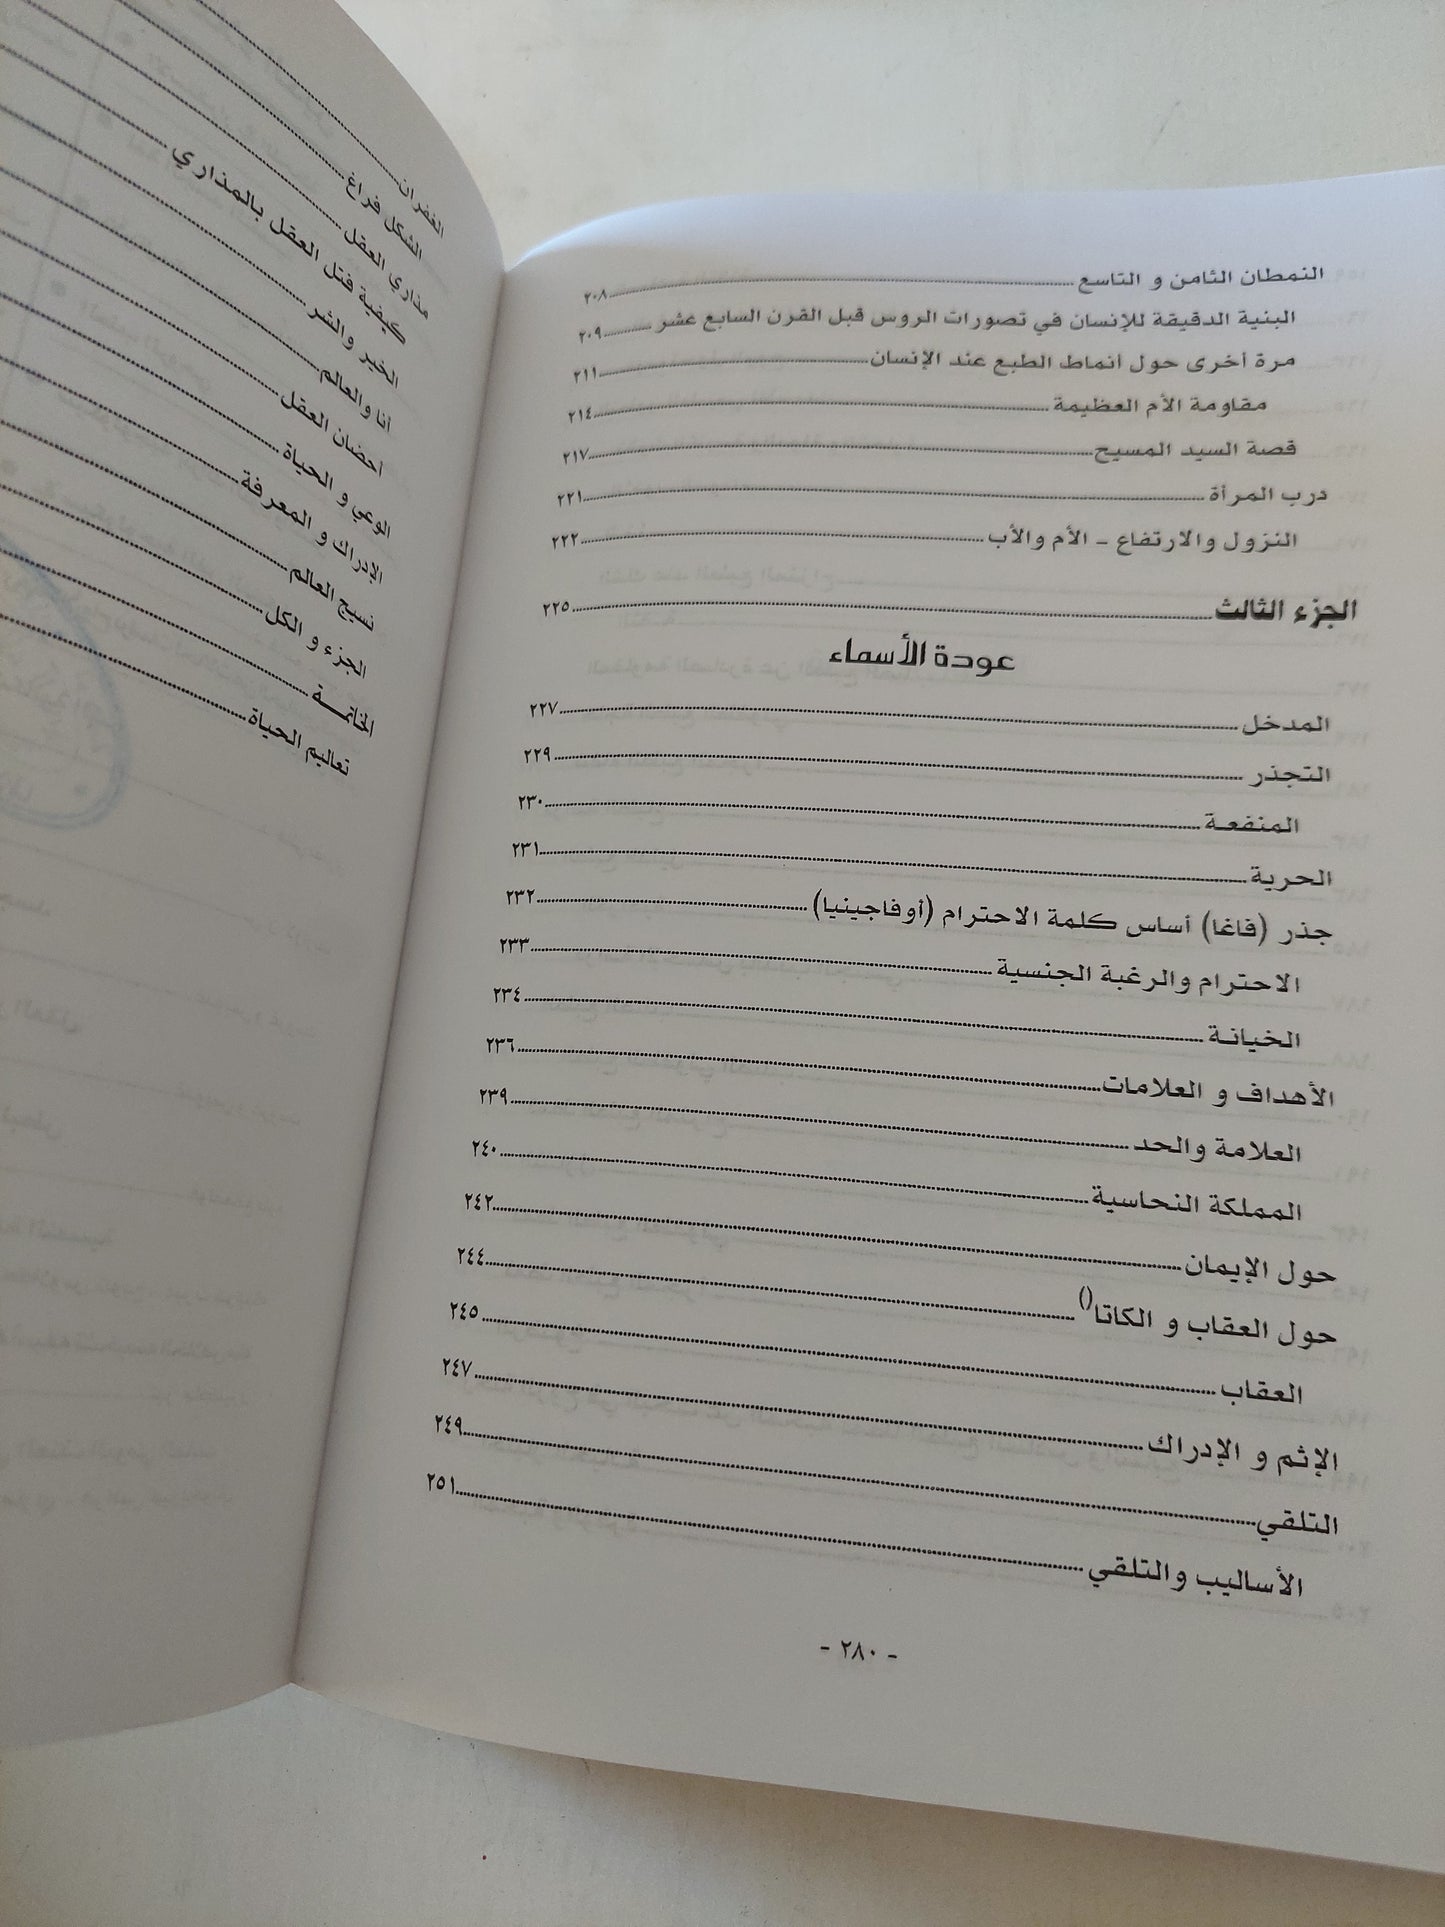 النمطان الثامن و التاسع ........ ٢٠٨
البنية الدقيقة للإنسان في تصورات الروس قبل القرن السابع عشر ........ ٢٠٩
مرة أخرى حول أنماط الطبع عند الإنسان ........ ٢١١
مقاومة الأم العظيمة ........ ٢١٤
قصة السيد المسيح ........ ٢١٧
درب المرأة ........ ٢٢١
النزول والارتفاع – الأم والأب ........ ٢٢٢
الجزء الثالث ........ ٢٢٥
عودة الأسماء
المدخل ........ ٢٢٧
التجذر ........ ٢٢٩
المنفعة ........ ٢٣٠
الحرية ........ ٢٣١
جذر (فاغا) أساس كلمة الاحترام (أوفاجينيا) ........ ٢٣٢
الاحترام والرغبة الجنسية ........ ٢٣٣
الخيانة ........ ٢٣٤
الأهداف و العلامات ........ ٢٣٦
العلامة والحد ........ ٢٣٩
المملكة النحاسية ........ ٢٤٠
حول الإيمان ........ ٢٤٢
حول العقاب و الكاتا() ........ ٢٤٤
العقاب ........ ٢٤٥
الإثم و الإدراك ........ ٢٤٧
التلقي ........ ٢٤٩
الأساليب والتلقي ........ ٢٥١
- ٢٨٠ -
الغفران ........
الشكل فراغ ........
مذاري العقل ........
كيفية فتل العقل بالمذاري ........
الخير والشر ........
أنا والعالم ........
أحضان العقل ........
الوعي و الحياة ........
الإدراك و المعرفة ........
نسيج العالم ........
الجزء و الكل ........
الخاتمـــة ........
تعاليم الحياة ........